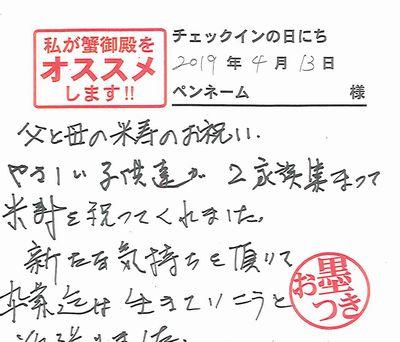 私が蟹御殿を
オススメ
します!!
チェックインの日にち
2019 年 4 月 13 日
ペンネーム 様
父と母の米寿のお祝い.
やさしい子供達が 2家族集まって
米寿を祝ってくれました。
新たな気持ちを頂いて
卒業迄は生きていこうと
ました.
お墨つき